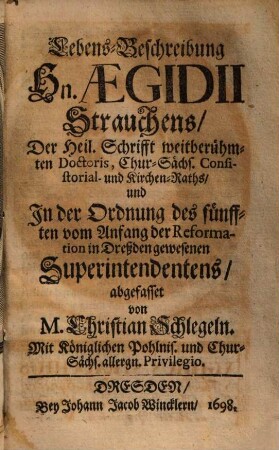 Lebens-Beschreibung
Hn. ÆGIDII
Strauchens/
Der Heil. Schrifft weitberühm-
ten Doctoris, Chur-Sächs. Consi-
storial- und Kirchen-Raths/
und
In der Ordnung des fünff-
ten vom Anfang der Reforma-
tion in Dreßden gewesenen
Superintendentens/
abgefasset
von
M. Christian Schlegeln.
Mit Königlichen Pohlnis. und Chur-
Sächs. allergn. Privilegio.
DRESDEN/
Bey Johann Jacob Wincklern/ 1698.